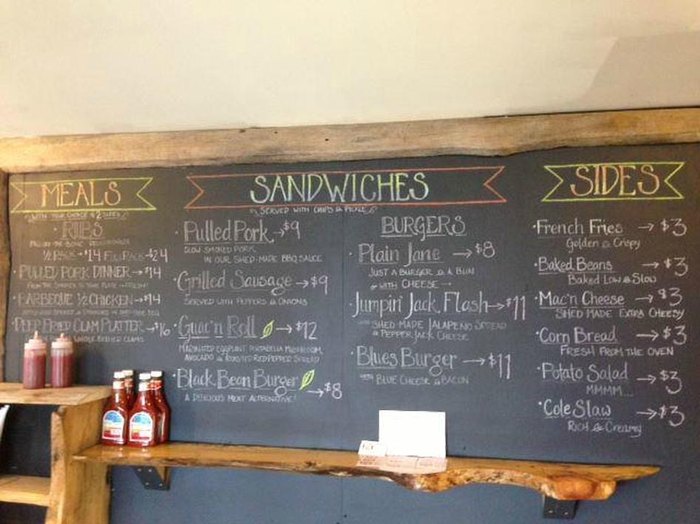 MEALS
WITH YOUR CHOICE of 2 SIDES
• RIBS
1/2 RACK • $14 FULL RACK • $24
• PULLED PORK DINNER → $14
FROM THE SMOKER TO YOUR PLATE
BARBECUE 1/2 CHICKEN → $14
DEEP FRIED CLAM PLATTER → $16
WHOLE BELLIED CLAMS
SANDWICHES
SERVED WITH CHIPS & PICKLE
• Pulled Pork → $9
SLOW SMOKED PORK
IN OUR SHED-MADE BBQ SAUCE
• Grilled Sausage → $9
SERVED WITH PEPPERS & ONIONS
• Guac'n Roll → $12
MARINATED EGGPLANT, PORTABELLA MUSHROOM,
AVOCADO & ROASTED RED PEPPER SPREAD
• Black Bean Burger → $8
A DELICIOUS MEAT ALTERNATIVE!
BURGERS
• Plain Jane → $8
JUST A BURGER & A BUN
WITH CHEESE
• Jumpin' Jack Flash → $11
SHED MADE JALAPENO SPREAD
& PEPPER JACK CHEESE
• Blues Burger → $11
WITH BLUE CHEESE & BACON
SIDES
• French Fries → $3
Golden & Crispy
• Baked Beans → $3
BAKED LOW & SLOW
• Mac'n Cheese → $3
SHED MADE EXTRA CHEESY
• Corn Bread → $3
FRESH FROM THE OVEN
• Potato Salad → $3
MMMM....
• Cole Slaw → $3
RICH & Creamy